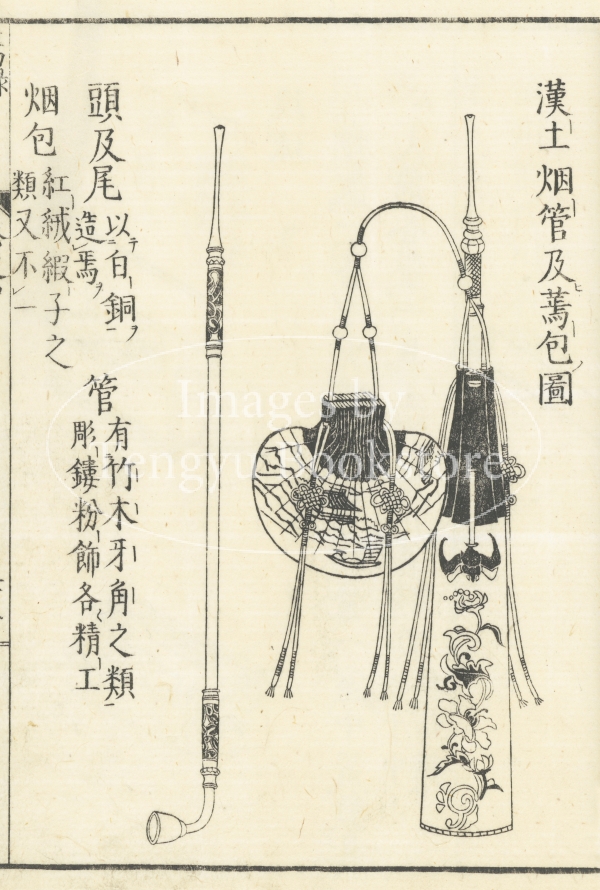 漢土烟管及蔫包圖
頭及尾
以白銅
造焉
管
有竹木牙角之類
彫鏤粉飾各精工
烟包
紅絨緞子之
類又不一
Images by
Bookstore